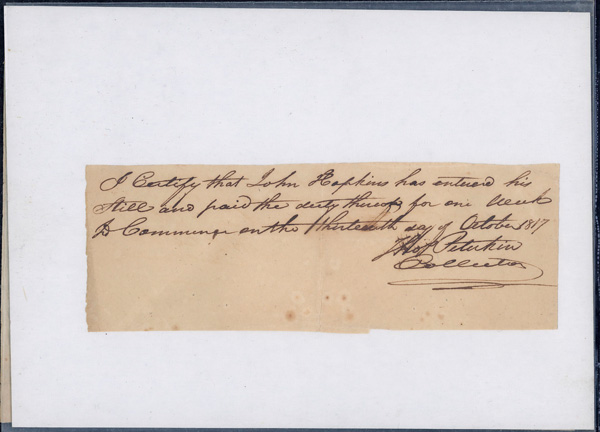 I Certify that John Hopkins has entered his
Still and paid the duty thereof for one Week
To Commence on the Thirteenth day of October 1817
Thos Peterkin
Collector